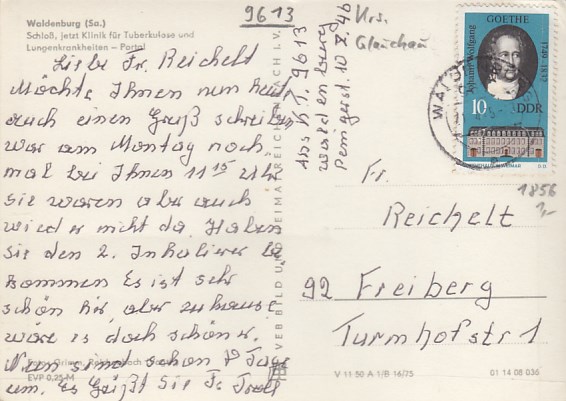 Waldenburg (Sa.)
Schloß, jetzt Klinik für Tuberkulose und
Lungenkrankheiten – Portal
Liebe Fr. Reichelt
Möchte Ihnen nun heut
auch einen Gruß schreiben
war am Montag noch
mal bei Ihnen 11 15 Uhr
sie waren aber auch
wieder nicht da. Haben
sie den 2. Inhalierer be
kommen Es ist sehr
schön hir, aber zu hause
wäre is doch schöner.
Nun sind schon 8 Tage
um. Es Grüßt Sie Fr.
EVP 0,25 M
9613
Abs K.T. 9613
Waldenburg
Penigerst. 10
Krs.
Glauchau
VEB BILD UND HEIMAT REICHENBACH I. V.
Johann Wolfgang
GOETHE
1749-1832
10 DDR
WALDENBURG
Fr.
Reichelt
1856
1,-
92 Freiberg
Turmhofstr 1
V 11 50 A 1/B 16/75
01 14 08 036